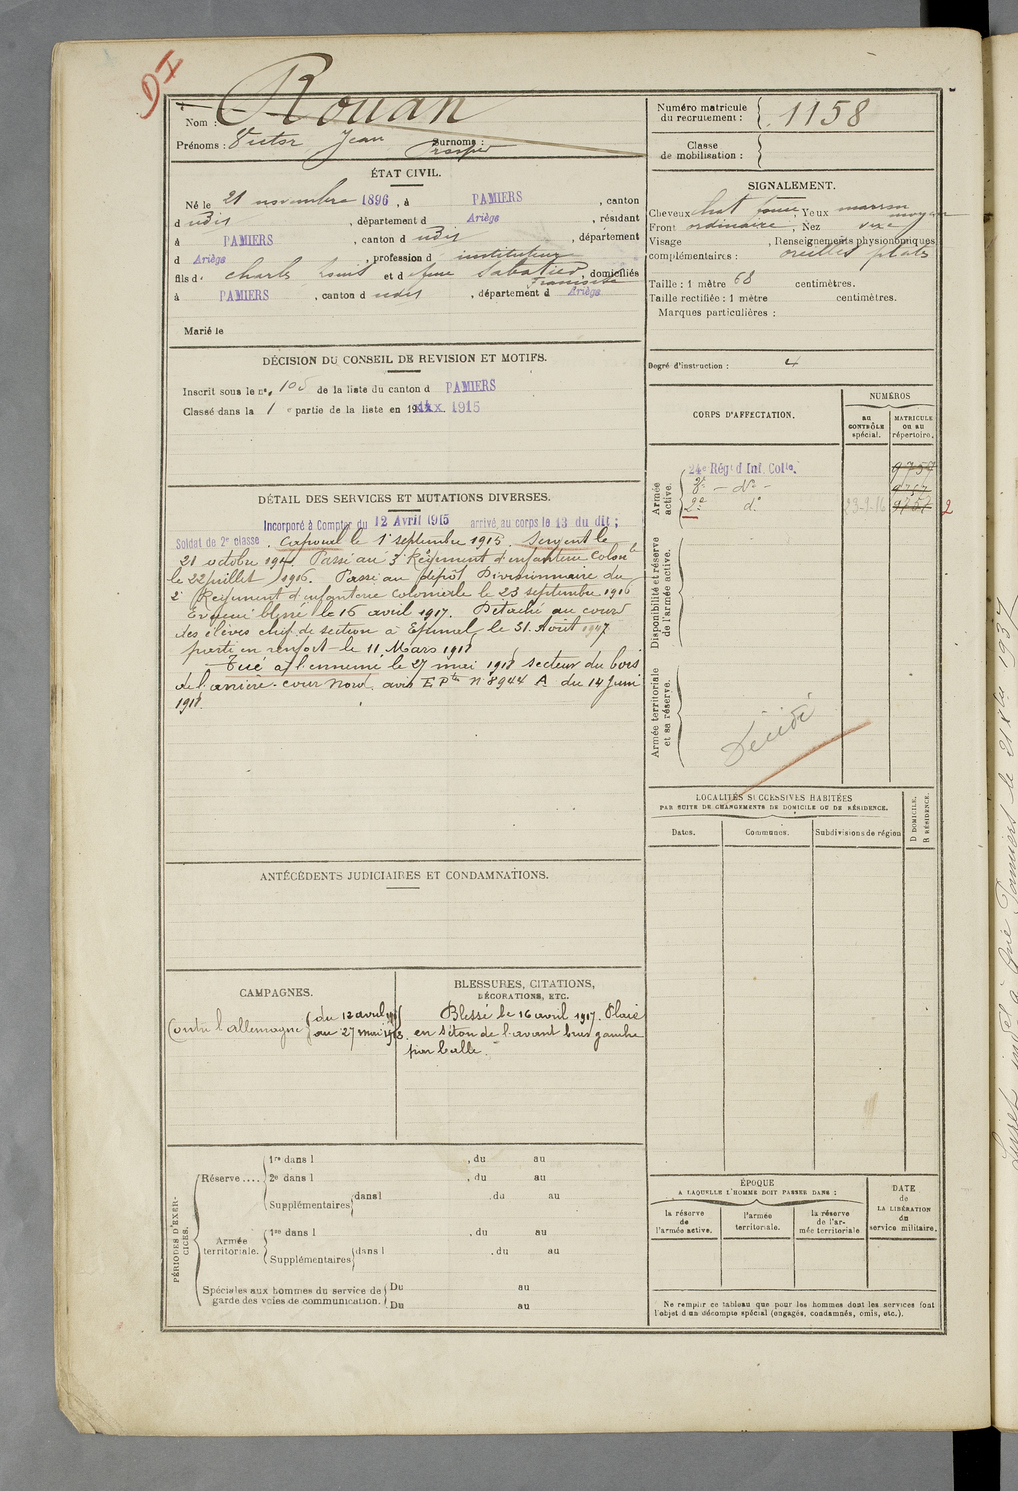 DI
Nom : Rouan
Prénoms : Victor Jean Prosper Surnoms :
ÉTAT CIVIL.
Né le 21 novembre 1896, à PAMIERS, canton
d udis, département d Ariège, résidant
à PAMIERS, canton d udis, département
d Ariège, profession d instituteur
fils d. Charles Louis et d Sabatier Françoise, domiciliés
à PAMIERS, canton d udis, département d Ariège
Marié le
DÉCISION DU CONSEIL DE REVISION ET MOTIFS.
Inscrit sous le n°. 105 de la liste du canton d PAMIERS
Classé dans la 1 e partie de la liste en 191 1915
DÉTAIL DES SERVICES ET MUTATIONS DIVERSES.
Incorporé à Compter du 12 Avril 1915 arrivé, au corps le 13 du dit ;
Soldat de 2e classe. Caporal le 1er septembre 1915. Sergent le
21 octobre Passé au 3e Régiment d'infanterie Colonle
le 22 juillet 1916. Passé au dépôt Divisionnaire du
2e Régiment d'infanterie coloniale le 23 septembre 1916
Evacué blessé le 16 avril 1917. Détaché au cours
des élèves chef de section à Epinal, le 31 Août 1917
parti en renfort le 11 Mars 1918
Tué à l'ennemi le 27 mai 1918 secteur du bois
de l'arrière-cour Nord, avis E Pts n° 8944 A du 14 Juin
1918.
ANTÉCÉDENTS JUDICIAIRES ET CONDAMNATIONS.
CAMPAGNES.
Contre l'allemagne du 12 avril 1915
au 27 mai 1918.
BLESSURES, CITATIONS,
DÉCORATIONS, ETC.
Blessé le 16 avril 1917. Plaie
en séton de l'avant bras gauche
par balle.
PÉRIODES D'EXERCICES.
Réserve....
1re dans l , du au
2e dans l , du au
Supplémentaires dans l , du au
Armée territoriale.
1re dans l , du au
Supplémentaires dans l , du au
Spéciales aux hommes du service de garde des voies de communication.
Du au
Du au
Numéro matricule du recrutement : 1158
Classe de mobilisation :
SIGNALEMENT.
Cheveux chat foncé, Yeux marron
Front ordinaire, Nez moyen
Visage , Renseignements physionomiques
complémentaires : oreilles plats
Taille : 1 mètre 68 centimètres.
Taille rectifiée : 1 mètre centimètres.
Marques particulières :
Degré d'instruction : 4
CORPS D'AFFECTATION.
NUMÉROS
au CONTRÔLE spécial.
MATRICULE ou au répertoire.
Armée active.
24e Régt d Inf. Colle. 9757
3e - do - 9757
2e do 23-9-16 9757 2
Disponibilité et réserve de l'armée active.
Armée territoriale et sa réserve.
Décédé
LOCALITÉS SUCCESSIVES HABITÉES
PAR SUITE DE CHANGEMENTS DE DOMICILE OU DE RÉSIDENCE.
Dates.
Communes.
Subdivisions de région
D DOMICILE.
R RÉSIDENCE.
ÉPOQUE
A LAQUELLE L'HOMME DOIT PASSER DANS :
la réserve de l'armée active.
l'armée territoriale.
la réserve de l'armée territoriale
DATE de LA LIBÉRATION du service militaire.
Ne remplir ce tableau que pour les hommes dont les services font
l'objet d'un décompte spécial (engagés, condamnés, omis, etc.).